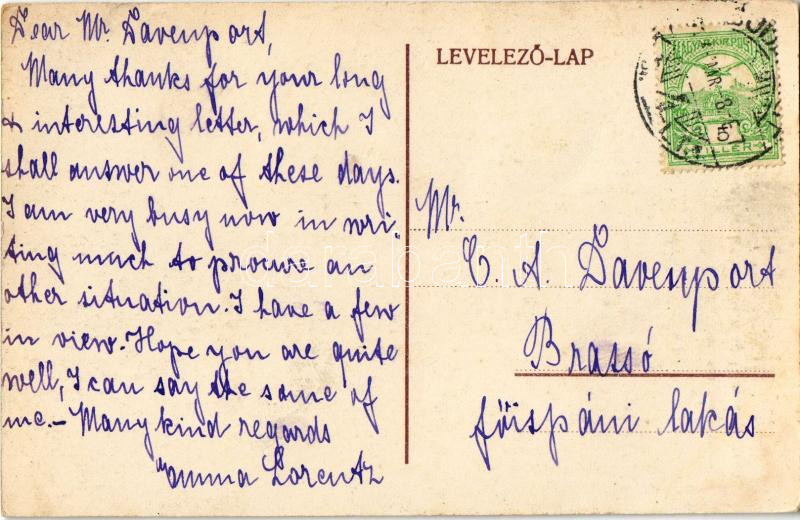 Dear Mr. Davenport,
Many thanks for your long
& interesting letter, which I
shall answer one of these days.
I am very busy now in wri-
ting much to procure an
other situation. I have a few
in view. Hope you are quite
well, I can say the same of
me. – Many kind regards
Emma Lorentz
LEVELEZŐ-LAP
MAGYAR KIR. POSTA
5
Mr.
C. A. Davenport
Brassó
főispáni lakás
darabanth